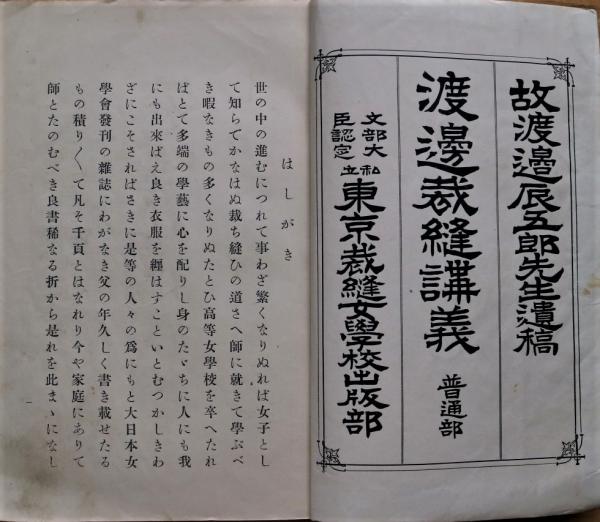 故渡邊辰五郎先生遺稿
渡邊裁縫講義
普通部
文部大
臣認定
私
立
東京裁縫女學校出版部
はしがき
世の中の進むにつれて事わざ繁くなりぬれば女子とし
て知らでかなはぬ裁ち縫ひの道さへ師に就きて學ぶべ
き暇なきもの多くなりぬたとひ高等女學校を卒へたれ
ばとて多端の學藝に心を配りし身のたゞちに人にも我
にも出來ばえ良き衣服を纒はすこといとむつかしきわ
ざにこそさればさきに是等の人々の爲にもと大日本女
學會發刊の雜誌にわがなき父の年久しく書き載せたる
もの積り〳〵て凡そ千頁とはなれり今や家庭にありて
師とたのむべき良書稀なる折から是れを此まゝになし
一